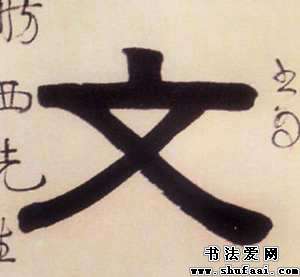 文
舫西先生
书法爱网
www.shufaai.com